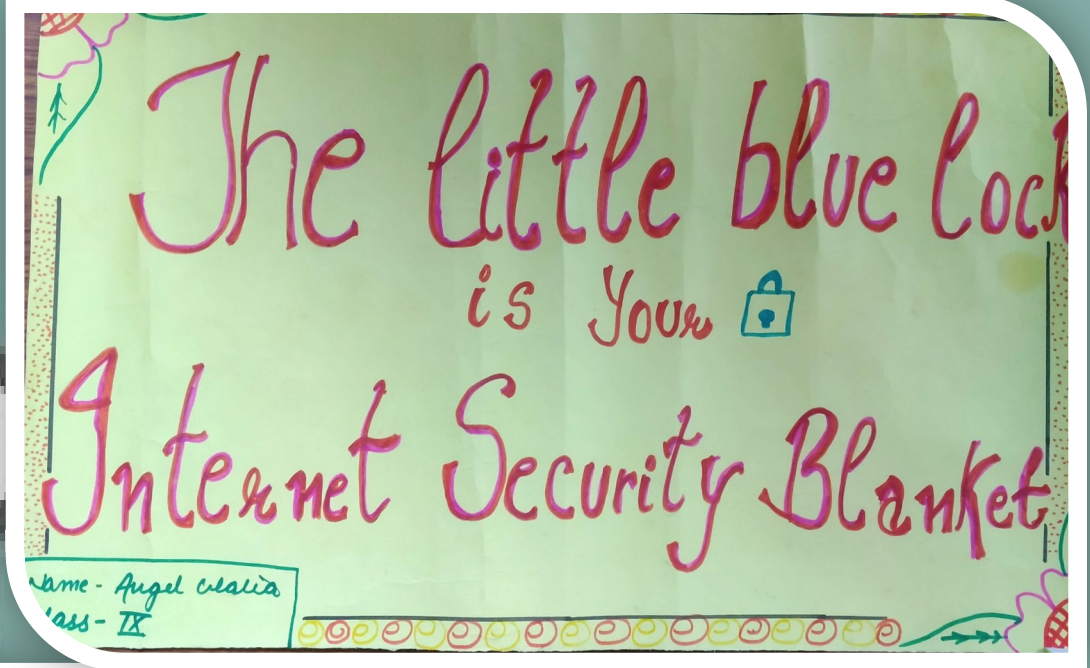 The little blue lock
is Your
Internet Security Blanket
Name - Angel
Class - IX